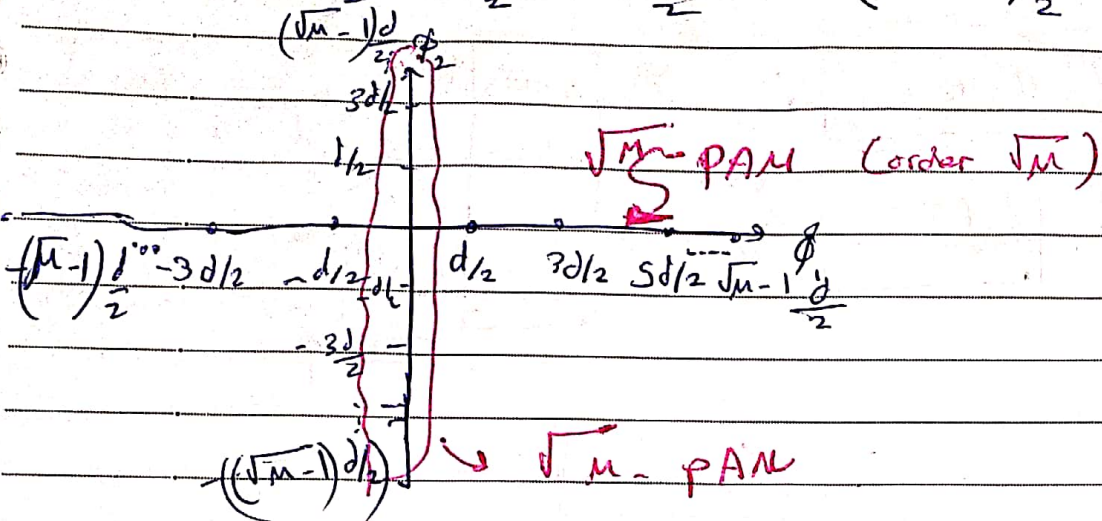 2 2 2
(√M - 1) d/2
ϕ2
3d/2
d/2
√M - PAM (order √M)
-(√M - 1) d/2 ... -3d/2 -d/2 d/2 3d/2 5d/2 ---- √M - 1 d/2 ϕ
-d/2
-3d/2
-((√M - 1) d/2)
√M - PAM